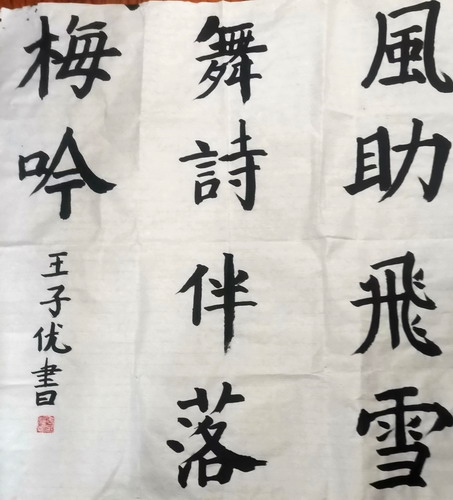 風助飛雪
舞詩伴落
梅吟
王子优書